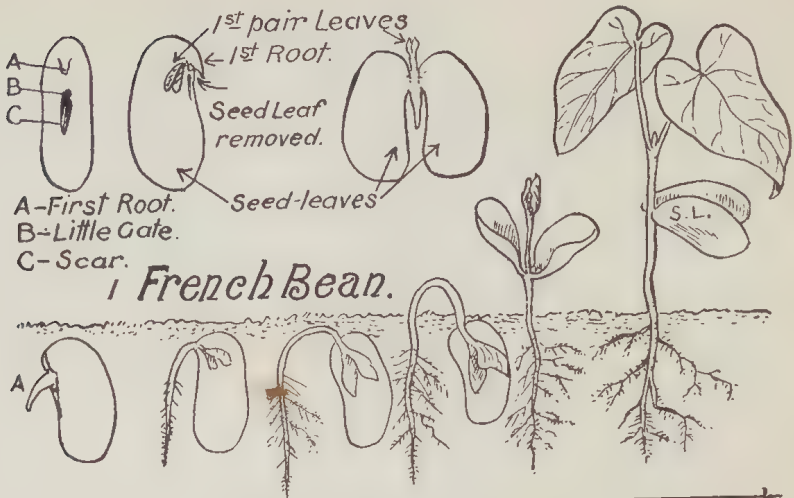 1st pair Leaves
1st Root.
A
B
C
Seed Leaf
removed.
Seed-leaves
A-First Root.
B-Little Gate.
C-Scar.
1 French Bean.
S.L.
A